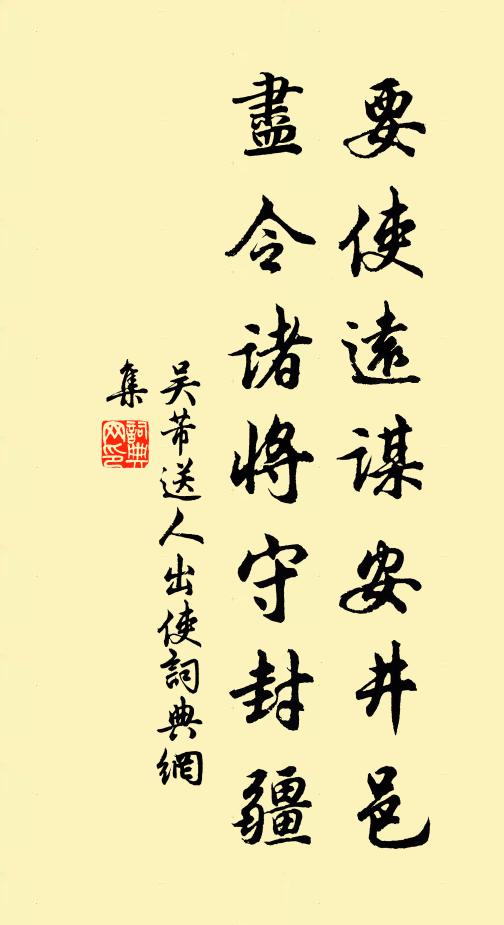 要使遠謀安井邑
盡令諸將守封疆
吳芾送人出使詞典網
集
詞典
网印